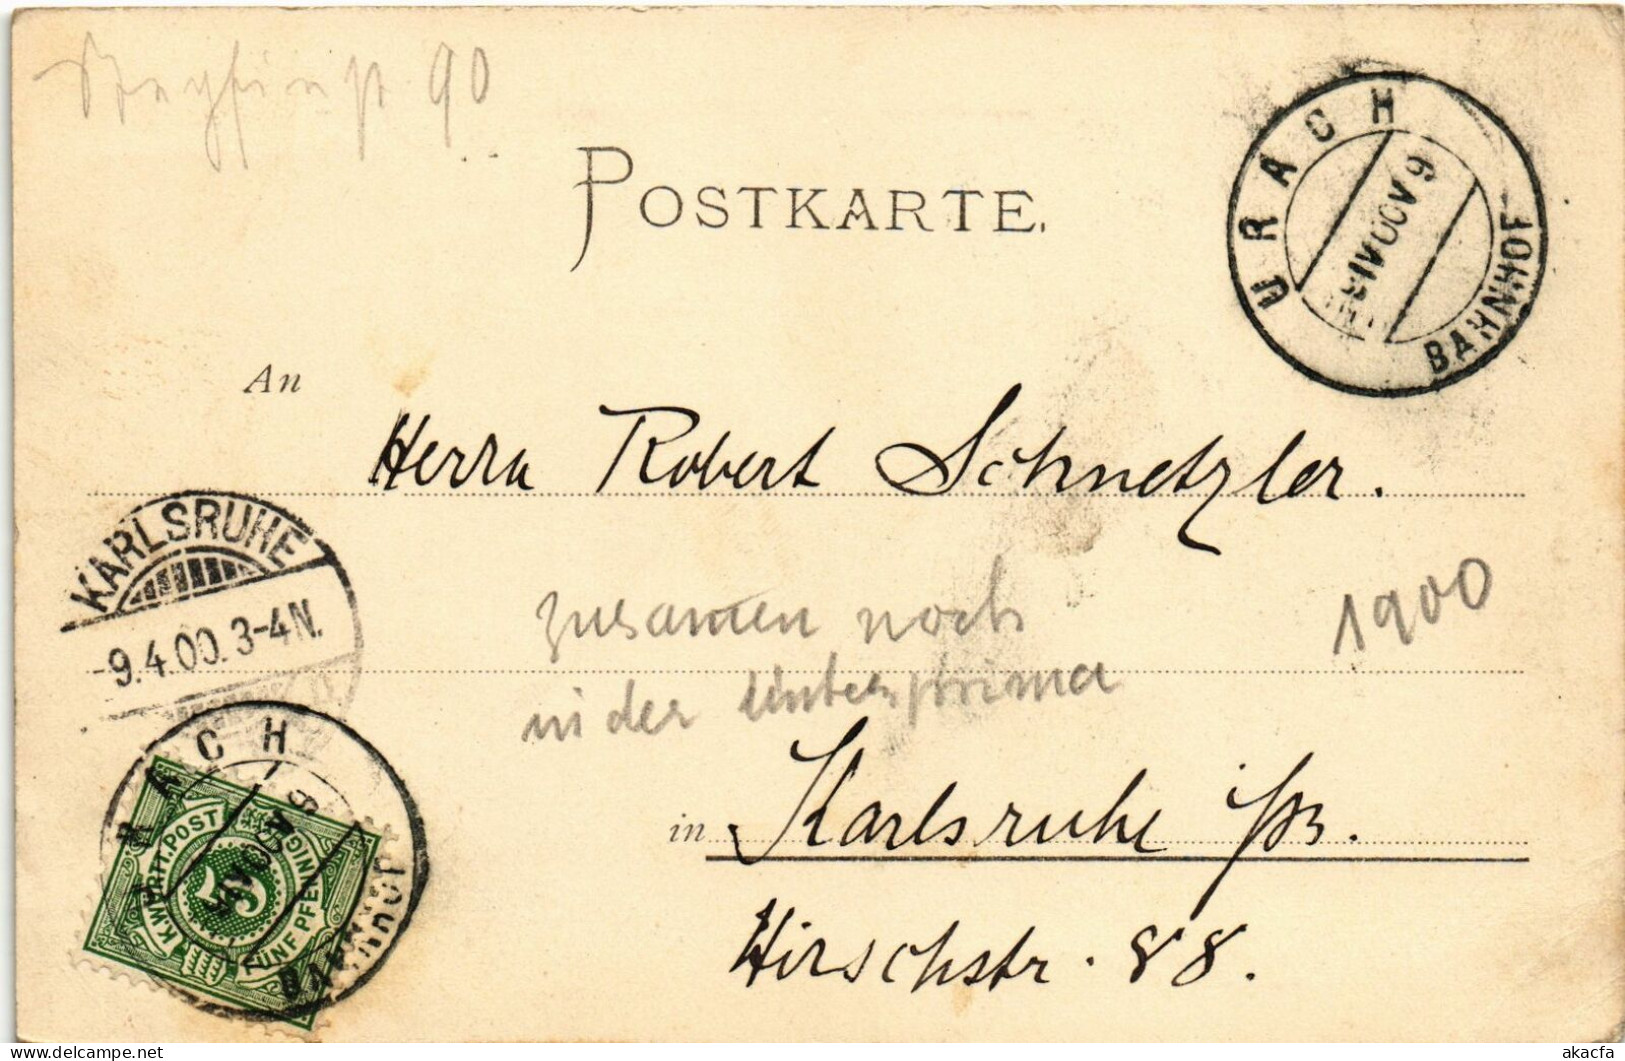 90
POSTKARTE.
URACH
9 V 00 IV 9
BAHNHOF
An
Herrn Robert Schnetzler.
KARLSRUHE
-9.4.00. 3-4N.
zusamen noch
1900
in der Unterprima
in Karlsruhe i/B.
Hirschstr. 88.
URACH
BAHNHOF
K. WÜRTT. POST
5
FÜNF PFENNIG
akacfa